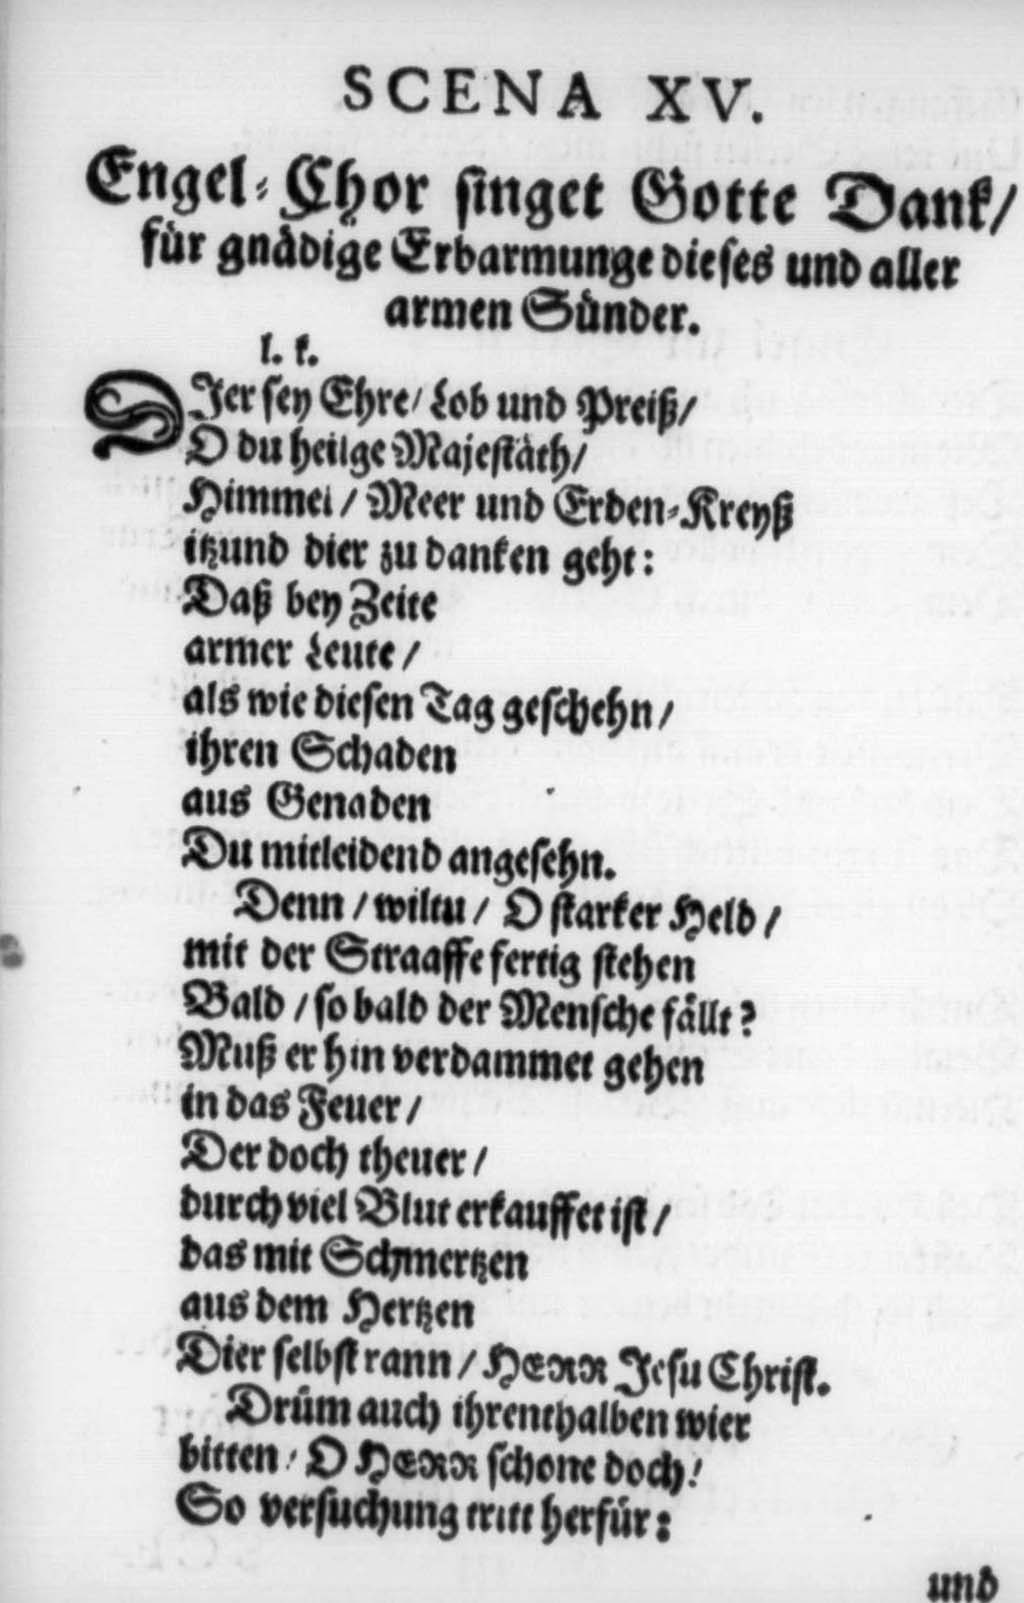 SCENA XV.
Engel-Chor singet Gotte Dank/
für gnädige Erbarmunge dieses und aller
armen Sünder.
l. k.
DIer sey Ehre/ Lob und Preiß/
O du heilge Majestäth/
Himmel / Meer und Erden-Kreyß
itzund dier zu danken geht:
Daß bey Zeite
armer Leute /
als wie diesen Tag geschehn /
ihren Schaden
aus Genaden
Du mitleidend angesehn.
Denn / wiltu / O starker Held /
mit der Straaffe fertig stehen
Bald / so bald der Mensche fällt?
Muß er hin verdammet gehen
in das Feuer /
Der doch theuer /
durch viel Blut erkauffet ist /
das mit Schmertzen
aus dem Hertzen
Dier selbst rann / HERR Jesu Christ.
Drüm auch ihrenthalben wier
bitten / O HERR schone doch!
So versuchung tritt herfür:
und